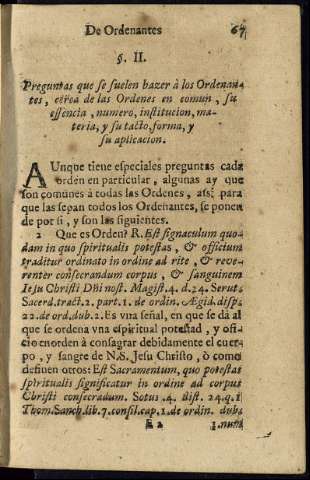 De Ordenantes 67
§. II.
Preguntas que se suelen hazer à los Ordenan-
tes, cerca de las Ordenes en comun, su
essencia, numero, institucion, ma-
teria, y su tacto, forma, y
su aplicacion.
AUnque tiene especiales preguntas cada
orden en particular, algunas ay que
son comunes à todas las Ordenes, assi para
que las sepan todos los Ordenantes, se ponen
de por si, y son las siguientes.
2 Que es Orden? R. Est signaculum quo-
dam in quo spiritualis potestas, & officium
traditur ordinato in ordine ad rite, & reve-
renter consecrandum corpus, & sanguinem
Iesu Christi Dñi nost. Magist. 4. d. 24. Serut.
Sacerd. tract. 2. part. 1. de ordin. Ægid. disp.
22. de ord. dub. 2. Es vna señal, en que se dà al
que se ordena vna espiritual potestad, y ofi-
cio en orden à consagrar debidamente el cuer-
po, y sangre de N.S. Jesu Christo, ò como
definen otros: Est Sacramentum, quo potestas
spiritualis significatur in ordine ad corpus
Christi consecradum. Sotus. 4. dist. 24. q. 1
Thom. Sanch. lib. 7. consil. cap. 1. de ordin. dub.
E 2 1. num